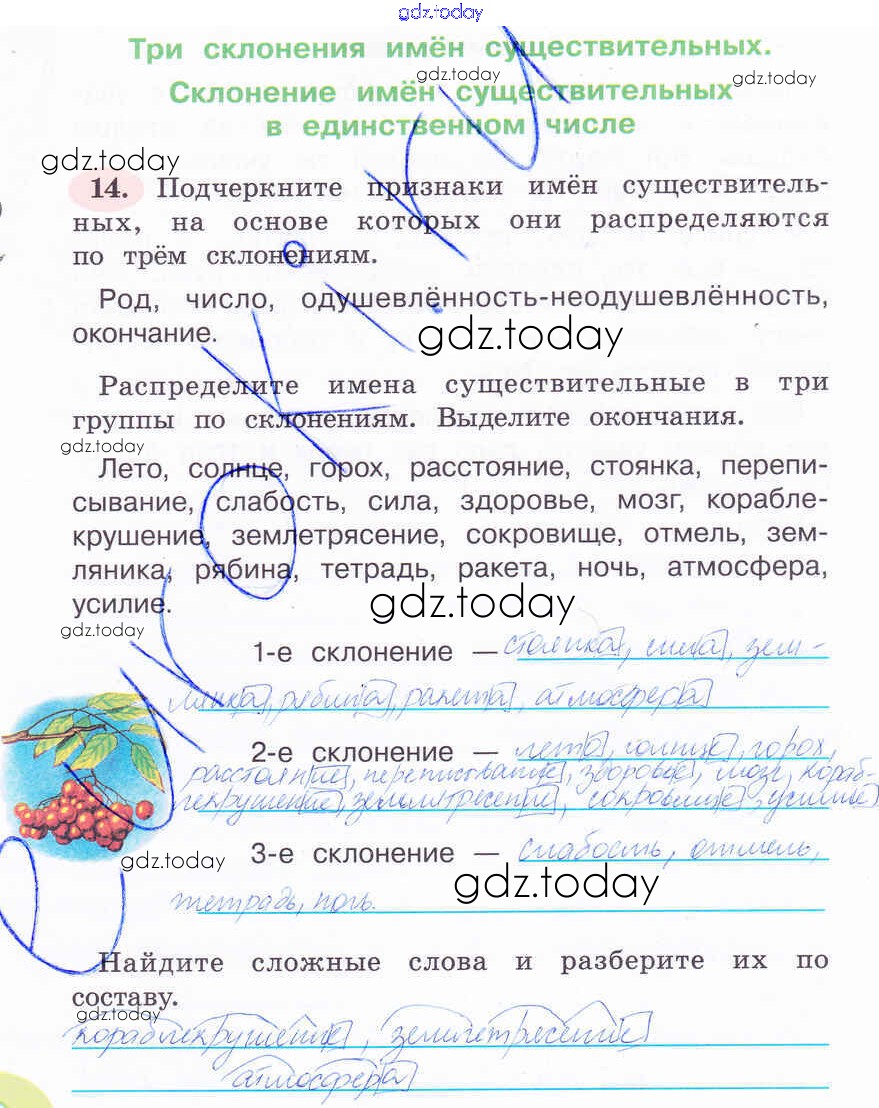 gdz.today
Три склонения имён существительных.
gdz.today
gdz.today
Склонение имён существительных
в единственном числе
gdz.today
14. Подчеркните признаки имён существитель-
ных, на основе которых они распределяются
по трём склонениям.
Род, число, одушевлённость-неодушевлённость,
окончание.
gdz.today
Распределите имена существительные в три
группы по склонениям. Выделите окончания.
gdz.today
Лето, солнце, горох, расстояние, стоянка, перепи-
сывание, слабость, сила, здоровье, мозг, корабле-
крушение, землетрясение, сокровище, отмель, зем-
ляника, рябина, тетрадь, ракета, ночь, атмосфера,
усилие.
gdz.today
gdz.today
1-е склонение — стоянка, сила, зем-
ляника, рябина, ракета, атмосфера
2-е склонение — лето, солнце, горох,
расстояние, переписывание, здоровье, мозг, кораб-
лекрушение, землетресение, сокровище, усилие
3-е склонение — слабость, отмель,
gdz.today
gdz.today
тетрадь, ночь.
Найдите сложные слова и разберите их по
составу.
gdz.today
кораблекрушение, землетресение
атмосфера